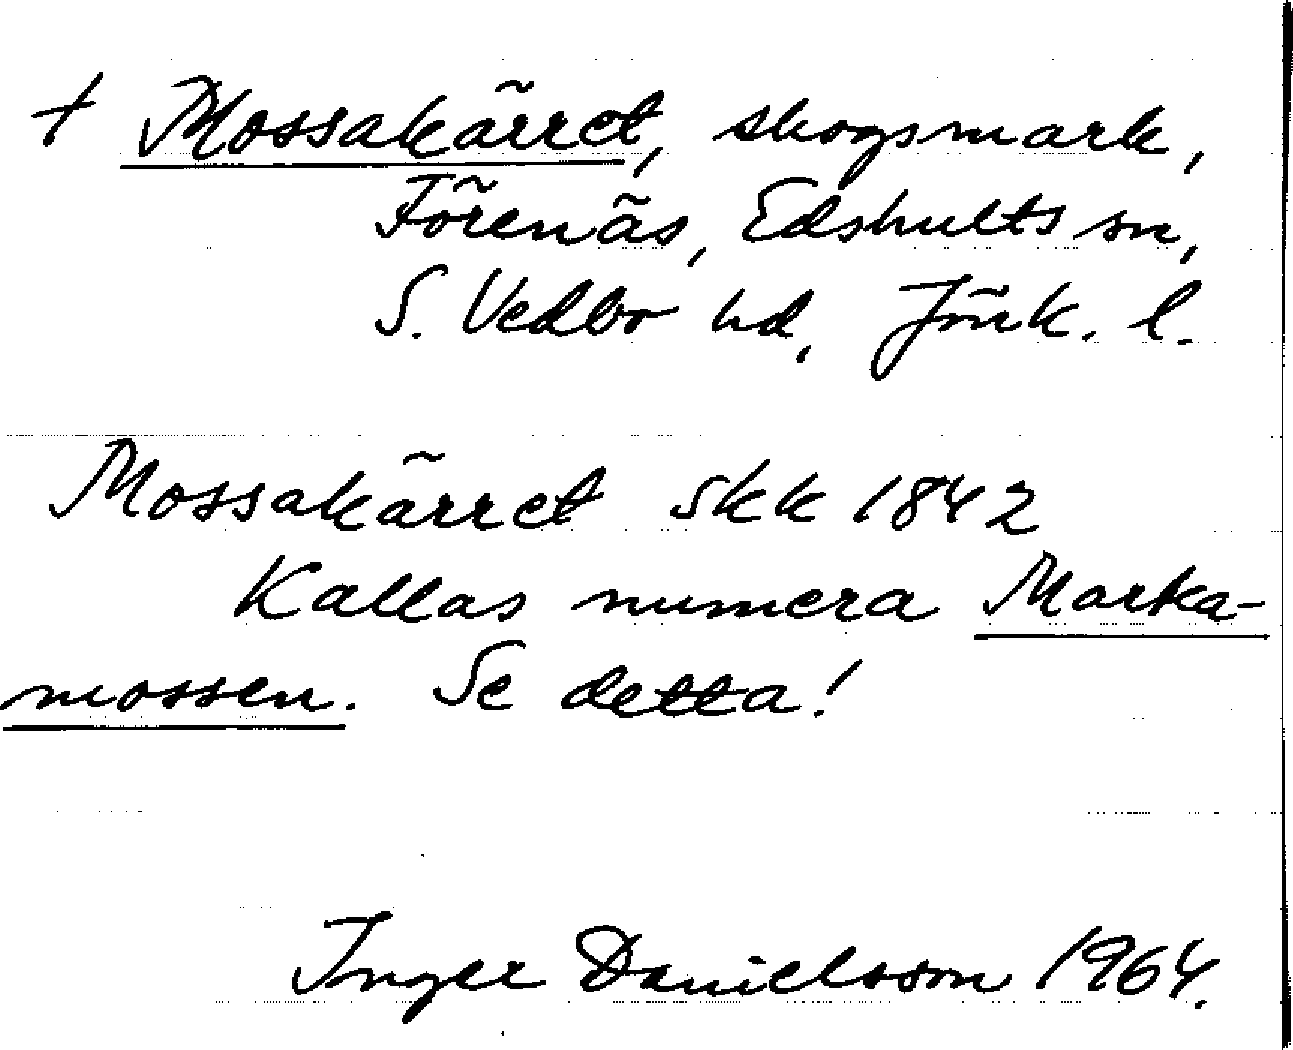 † Mossakärret, skogsmark,
Förenäs, Edshults sn,
S. Vedbo hd, Jönk. l.
Mossakärret skk 1842
Kallas numera Marka-
mossen. Se detta!
Inger Danielsson 1964.